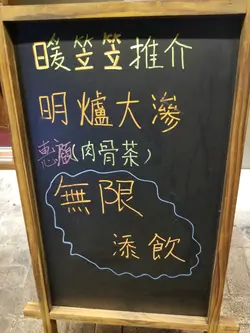 暖笠笠推介
明爐大滲
惠顧(肉骨茶)
無限
添飲